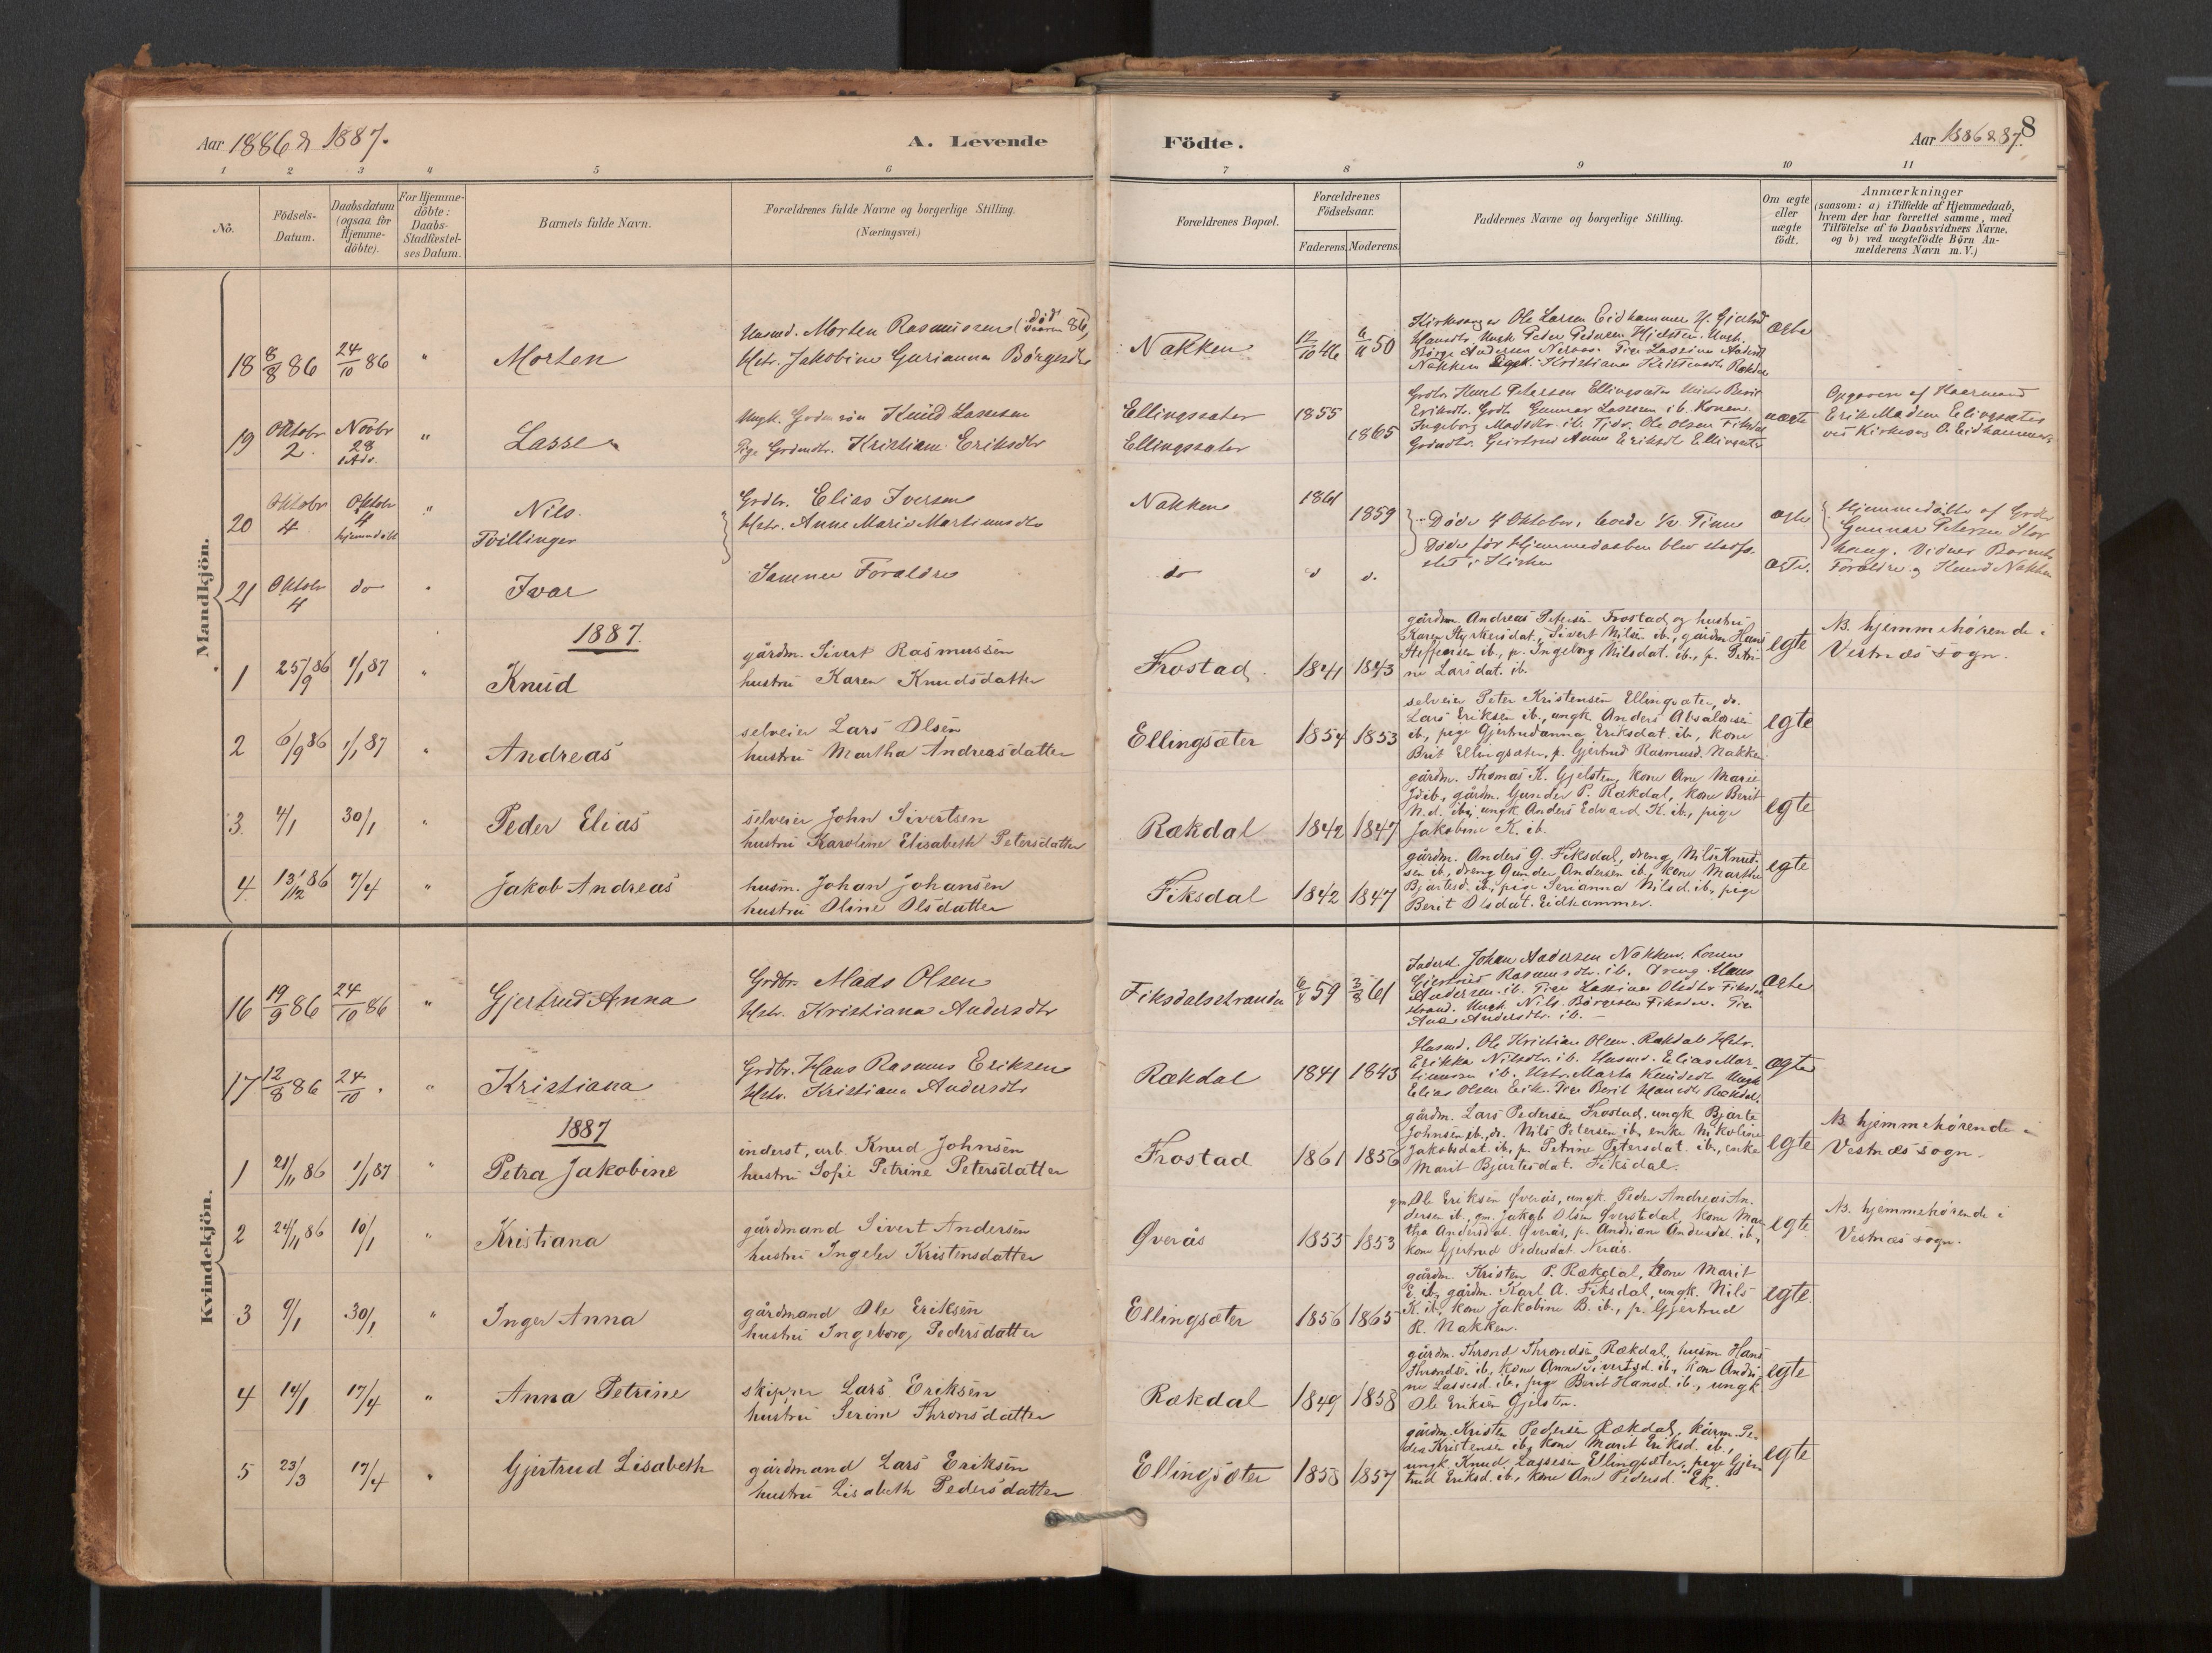 Aar 1886 & 1887.
A. Levende
Födte.
Aar 1886 & 87.
8
1 2 3 4 5 6 7 8 9 10 11
No.
Födsels-
Datum.
Daabsdatum
(ogsaa for
Hjemme-
döbte).
For Hjemme-
döbte:
Daabs-
Stadfæstel-
ses Datum.
Barnets fulde Navn.
Forældrenes fulde Navne og borgerlige Stilling.
(Næringsvei.)
Forældrenes Bopæl.
Forældrenes
Födselsaar.
Faderens. Moderens.
Faddernes Navne og borgerlige Stilling.
Om ægte
eller
uægte
födt.
Anmærkninger
(saasom: a) i Tilfælde af Hjemmedaab,
hvem der har forrettet samme, med
Tilföielse af to Daabsvidners Navne,
og b) ved uægtefödte Børn An-
melderens Navn m. V.)
Mandkjön.
18 8/8 86 24/10 86 " Morten
Husmd. Morten Rasmussen (død vaaren 86)
Hstr. Jakobine Gurianna Børgesdtr
Nakken 12/10 46 6/11 50
Kirkesanger Ole Larsen Eidhammer
Peder Pedersen Hjelsten. Ungk.
Nakken Kristiana
ægte
19 Oktobr 2. Novbr 28 1 Adv. " Lasse
Ungk. Knud Lassesen
Pige Grdmdtr. Kristiane Eriksdtr
Ellingsæter 1855
Ellingsæter 1865
Grdbr. Knut Petersen Ellingsæter Hustr Berit
Eriksdtr. Grdbr Gunnar Lassesen ib. Konen
Ingeborg Madsdtr. ib. Ole Olsen Fiksdal
Grdmdtr. Gjertrud Anna Eriksdtr Ellingsæter
uægte
Opgaven af Kaarmand
Erik Madsen Ellingsæter
ved Kirkesang O. Eidhammer
20 Oktobr 4 Oktobr 4 hjemmedøbt " Nils
Tvillinger
Grdbr. Elias Iversen
Hstr. Anne Marie Martinusdtr
Nakken 1861 1859
Døde 4 Oktober, levede 1/2 Time
Døde før Hjemmedaaben blev stadfæ-
stet i Kirken
ægte
Hjemmedøbte af Grdbr
Gunnar Petersen Stor
haug. Vidner Barnets
Forældre og Knud Nakken
21 Oktobr 4 do " Ivar
Samme Forældre
do d d.
ægte.
1887.
1 25/9 86 1/1 87 " Knud
gårdm. Sivert Rasmussen
hustru Karen Knudsdatter
Frostad. 1841 1843
gårdm. Andreas Petersen Frostad og hustru
Karen Styrkersdat., Sivert Nilsen ib., gårdm Hans
Steffensen ib., p. Ingeborg Nilsdat. ib., p. Petri-
ne Larsdat. ib.
egte
NB. hjemmehørende i
Vestnæs sogn.
2 6/9 86 1/1 87 " Andreas
selveier Lars Olsen
hustru Martha Andreasdatter
Ellingsæter 1854 1853
selveier Peter Kristensen Ellingsæter, do.
Lars Eriksen ib., ungk Anders Absalonsen
ib., pige Gjertrudanna Eriksdat. ib., kone
Brit Ellingsæter, p. Gjertrud Rasmusd. Nakken.
egte
3. 4/1 30/1 " Peder Elias
selveier John Sivertsen
hustru Karoline Elisabeth Petersdatter
Rækdal 1842 1847
gårdm. Thomas K. Gjelsten, kone Ane Marie
Jd ib., gårdm. Gunder P. Rækdal, kone Berit
N.d. ib., ungk Anders Edvard K. ib., pige
Jakobine K. ib.
egte
4. 13/12 86 7/4 " Jakob Andreas
husm. Johan Johansen
hustru Oline Olsdatter
Fiksdal 1842 1847
gårdm. Anders G. Fiksdal, dreng Nils Knud-
sen ib., dreng Gunder Andersen ib., kone Marthe
Bjartesd. ib., pige Serianna Nilsd. ib., pige
Berit Olsdat. Eidhammer.
egte
Kvindekjön.
16 19/9 86 24/10 86 " Gjertrud Anna
Grdbr. Mads Olsen
Hstr. Kristiana Andersdtr
Fiksdalstranden 6/4 59 3/8 61
Johan Andersen Nakken. Konen
Gjertrud Rasmusdtr. ib. Dreng Hans
Andersen ib. Pige Lassina Olsdtr Fiksdal
strand. Ungk Nils Børgesen Fiksdal. Pige
Ane Andersdtr. ib. —
ægte
17 12/8 86 24/10 " " Kristiana
Grdbr. Hans Rasmus Eriksen
Hstr. Kristiana Andersdtr
Rækdal 1841 1843
Husmd. Ole Kristian Olsen. Rækdal Hstr.
Erikka Nilsdtr. ib. Husmd. Elias Mar-
tinussen ib. Hstr. Marta Knudsdtr Ungk
Elias Olsen Eik. Pige Berit Hansdtr Rækdal.
ægte
1887
1 21/11 86 1/1 87 " Petra Jakobine
inderst, arb. Knud Johnsen
hustru Sofie Petrine Petersdatter
Frostad 1861 1856
gårdm. Lars Pedersen Frostad, ungk Bjarte
Johnsen ib., do. Nils Petersen ib, enke Nikoline
Jakobsdat. ib., p. Petrine Petersdat. ib., enke
Marit Bjartesdat. Fiksdal.
egte
NB. hjemmehørende i
Vestnæs sogn.
2 24/11 86 10/1 " Kristiana
gårdmand Sivert Andersen
hustru Ingeler Kristensdatter
Øverås 1855 1853
gm. Ole Eriksen Øverås, ungk. Peder Andreas An-
dersen ib., gm. Jakob Olsen Øverstdal, kone Mar-
tha Andersdat. Øverås, p. Andriane Andersdat. ib.,
kone Gjertrud Pedersdat. Nerås.
egte
NB. hjemmehørende i
Vestnæs sogn.
3 9/1 30/1 " Inger Anna
gårdmand Ole Eriksen
hustru Ingeborg Pedersdatter
Ellingsæter 1856 1865
gårdm. Kristen P. Rækdal, kone Marit
E. ib., gårdm. Karl A. Fiksdal, ungk. Nils
K. ib., kone Jakobine B. ib., p. Gjertrud
R. Nakken.
egte.
4 14/1 17/4 " Anna Petrine
skipper Lars Eriksen
hustru Serine Thronsdatter
Rækdal 1849 1858
gårdm. Thrond Throndse Rækdal, husm Hans
Throndse. ib., kone Anne Sivertsd. ib., kone Andri-
ne Lassesd. ib., pige Berit Hansd. ib., ungk
Ole Eriksen Gjelsten.
egte
5 23/3 17/4 " Gjertrud Lisabeth
gårdmand Lars Eriksen
hustru Lisabeth Pedersdatter
Ellingsæter 1858 1857
gårdm. Kristen Pedersen Rækdal, kårm. Pe-
der Kristensen ib., kone Marit Eriksd. ib.,
ungk. Knud Lassesen Ellingsæter, pige Gjer-
trud Eriksd. ib., kone Ane Pedersd. Ek.
egte